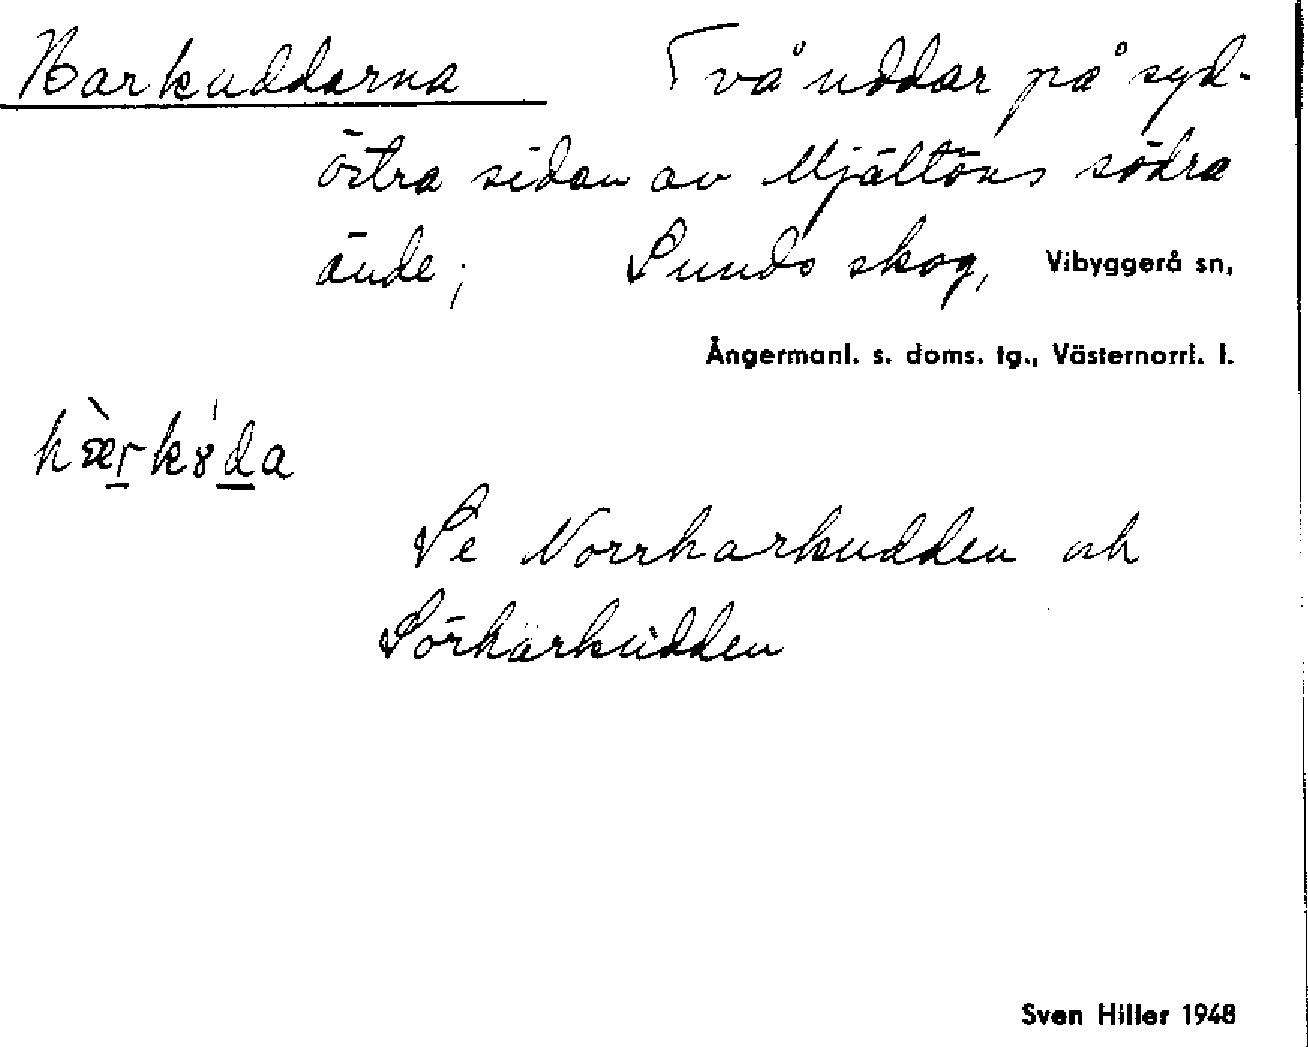 Harkuddarna Två uddar på syd-
östra sidan av Mjältöns södra
ände; Sunds skog, Vibyggerå sn,
Ångermanl. s. doms. tg., Västernorrl. l.
Se Norrharkudden och
Sörharkudden
Sven Hiller 1948